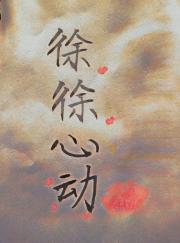 徐徐心动